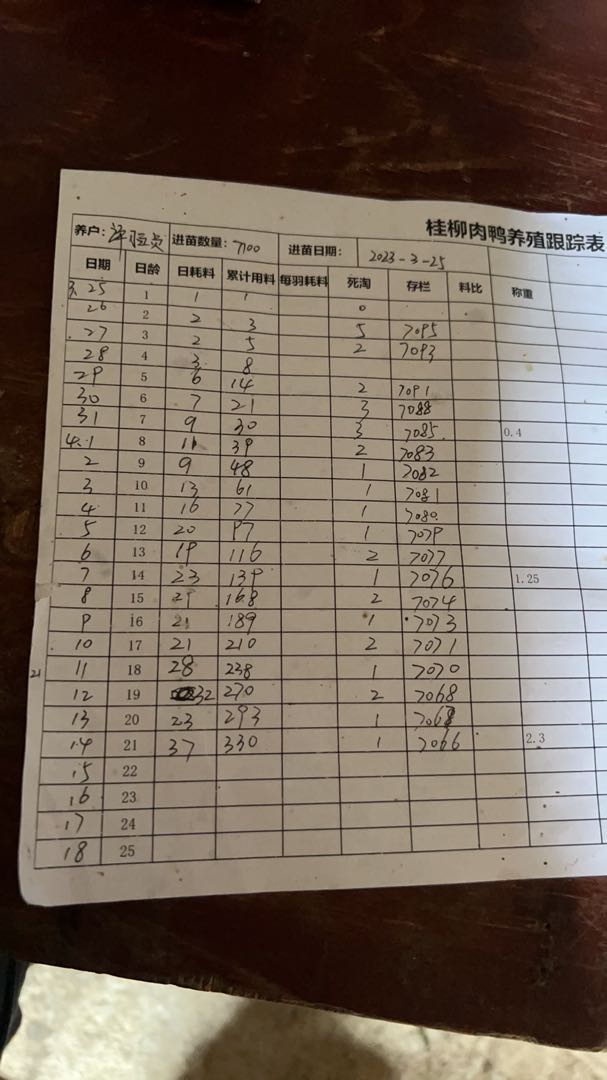 桂柳肉鸭养殖跟踪表
养户: 进苗数量: 7100 进苗日期: 2023-3-25
日期 日龄 日耗料 累计用料 每羽耗料 死淘 存栏 料比 称重
3.25 1 1 1 0
26 2 2 3 5 7095
27 3 2 5 2 7093
28 4 3 8
29 5 6 14 2 7091
30 6 7 21 3 7088
31 7 9 30 3 7085. 0.4
4.1 8 11 39 2 7083
2 9 9 48 1 7082
3 10 13 61 1 7081
4 11 16 77 1 7080
5 12 20 97 1 7079
6 13 19 116 2 7077
7 14 23 139 1 7076 1.25
8 15 29 168 2 7074
9 16 21 189 1 7073
10 17 21 210 2 7071
21
11 18 28 238 1 7070
12 19 32 270 2 7068
13 20 23 293 1
14 21 37 330 1 7066 2.3
15 22
16 23
17 24
18 25